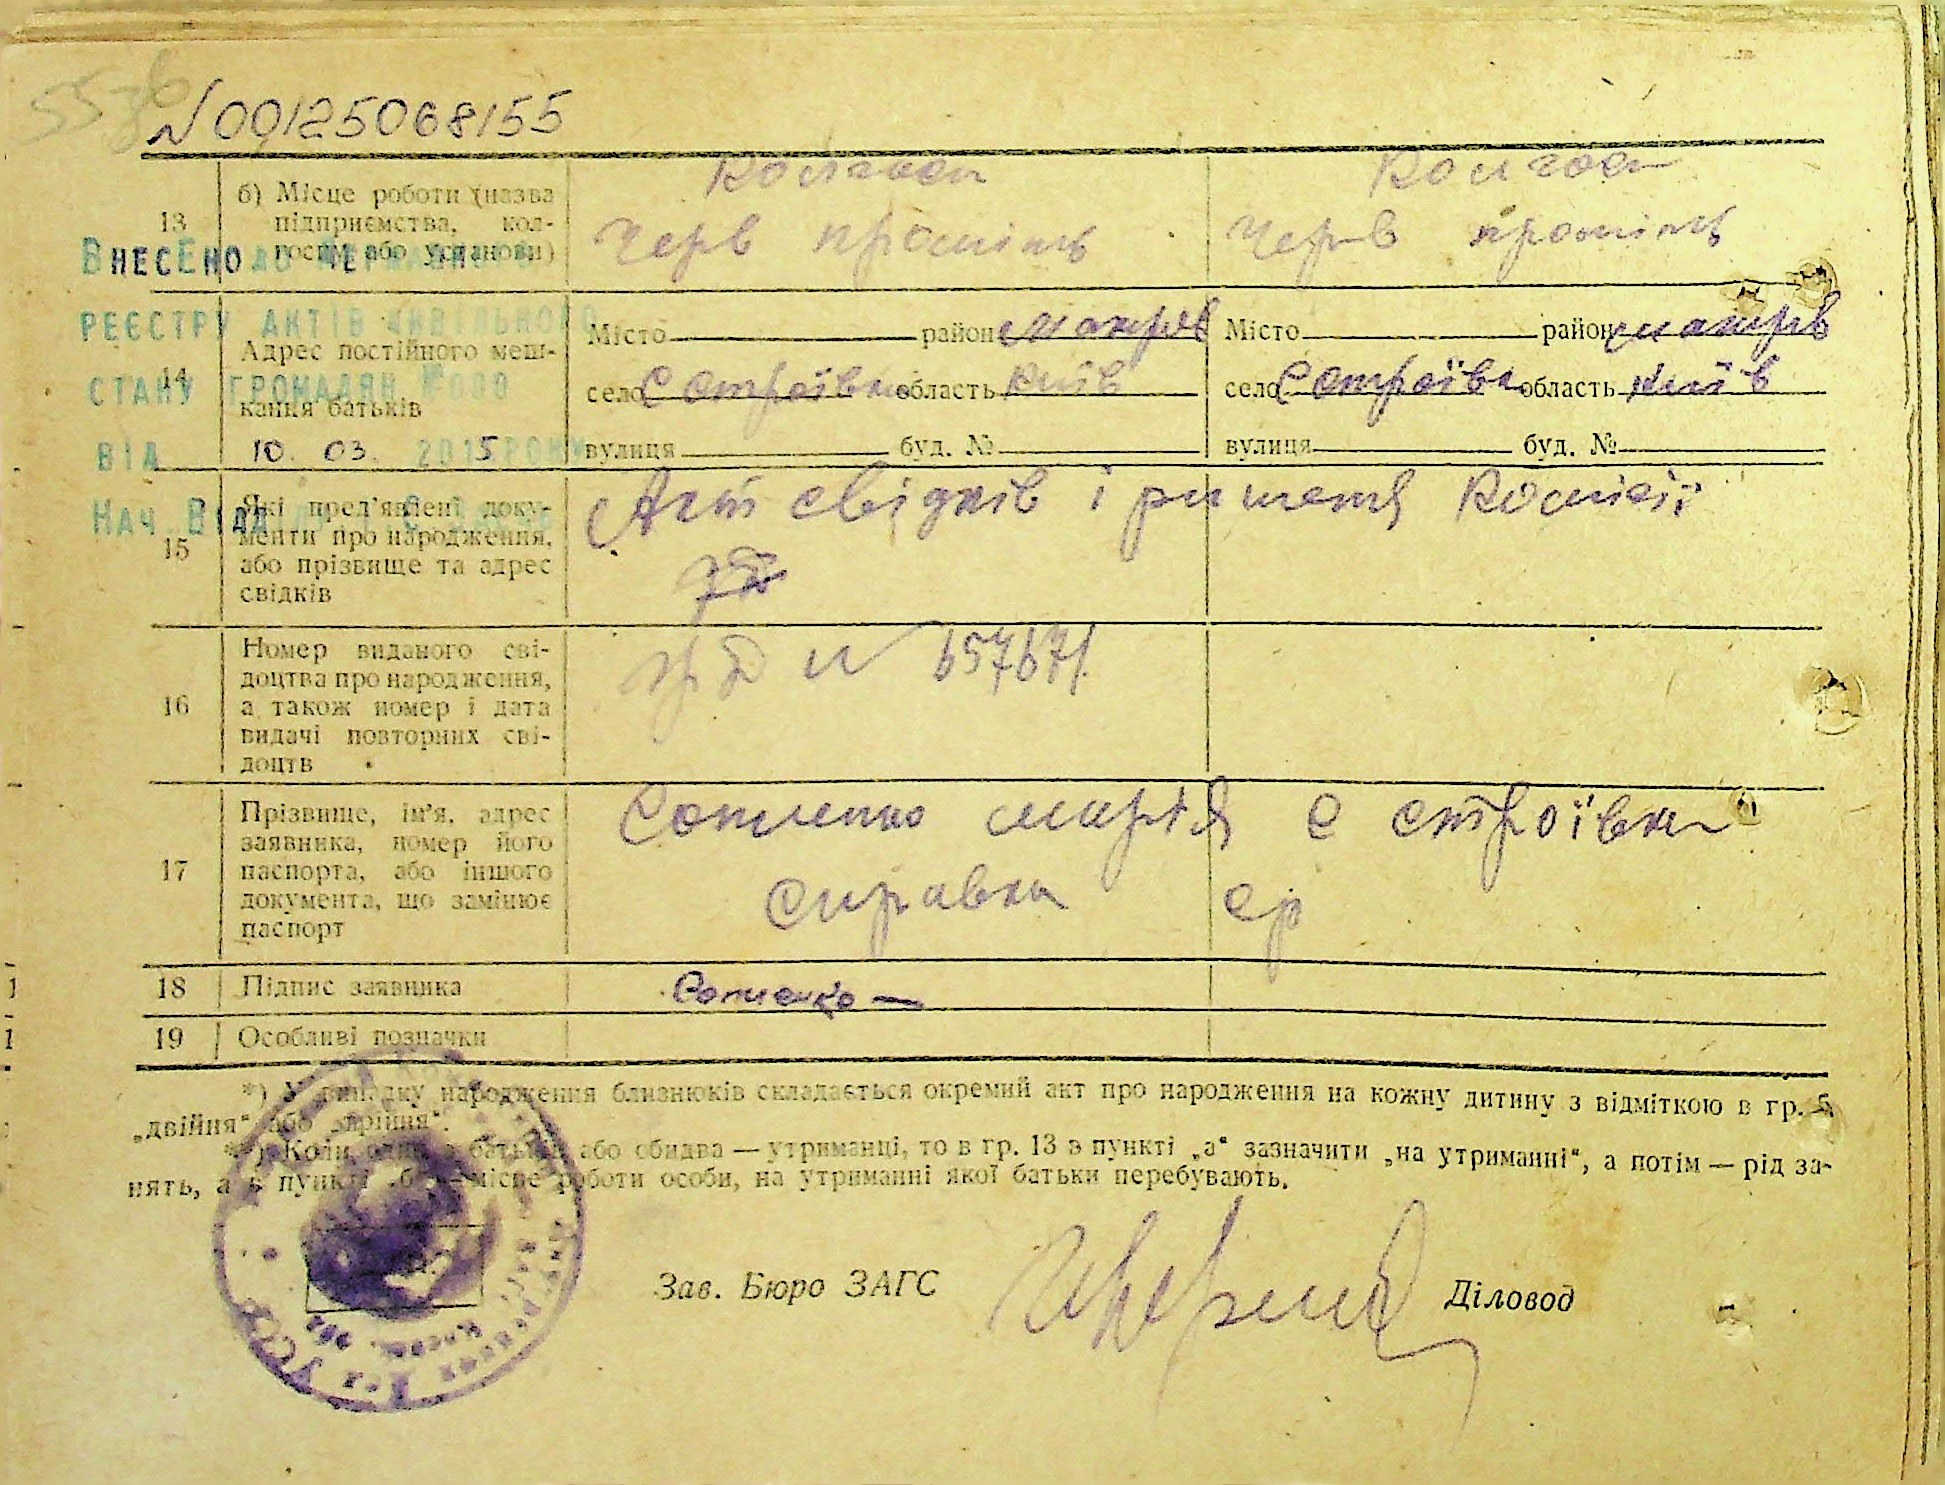 N 00125068155
13 б) Місце роботи (назва підприємства, колгоспи або установи)
Колгосп Черв промінь
Колгосп Черв промінь
ВНЕСЕНО ДО ДЕРЖАВНОГО
РЕЄСТРУ АКТІВ ЦИВІЛЬНОГО
СТАНУ ГРОМАДЯН №000
ВІД 10. 03. 2015 РОКУ
НАЧ. ВІДД
14 Адрес постійного меш-
кання батьків
Місто район Макарів
село Ситроївка область Київ
вулиця буд. №
Місто район Макарів
село область Київ
вулиця буд. №
15 Які пред'явлені доку-
менти про народження,
або прізвище та адрес
свідків
Акт свідків і рішення комісії
16 Номер виданого сві-
доцтва про народження,
а також номер і дата
видачі повторних сві-
доцтв
N 657671
17 Прізвище, ім'я, адрес
заявника, номер його
паспорта, або іншого
документа, що замінює
паспорт
Сотченко Марія с Строївка
справка ср
18 Підпис заявника
Сотченко
19 Особливі позначки
*) У випадку народження близнюків складається окремий акт про народження на кожну дитину з відміткою в гр. 5
„двійня“ або „трійня“.
**) Коли один з батьків або обидва — утриманці, то в гр. 13 в пункті „а“ зазначити „на утриманні“, а потім — рід за-
нять, а в пункті „б“ — місце роботи особи, на утриманні якої батьки перебувають.
Зав. Бюро ЗАГС
Діловод
УССР